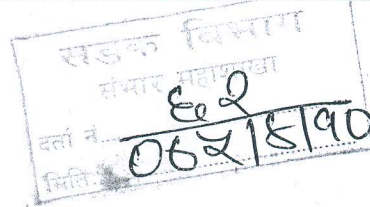 सडक विभाग
संभार महाशाखा
दर्ता नं. ६२
मिति: ०७५|४|१०